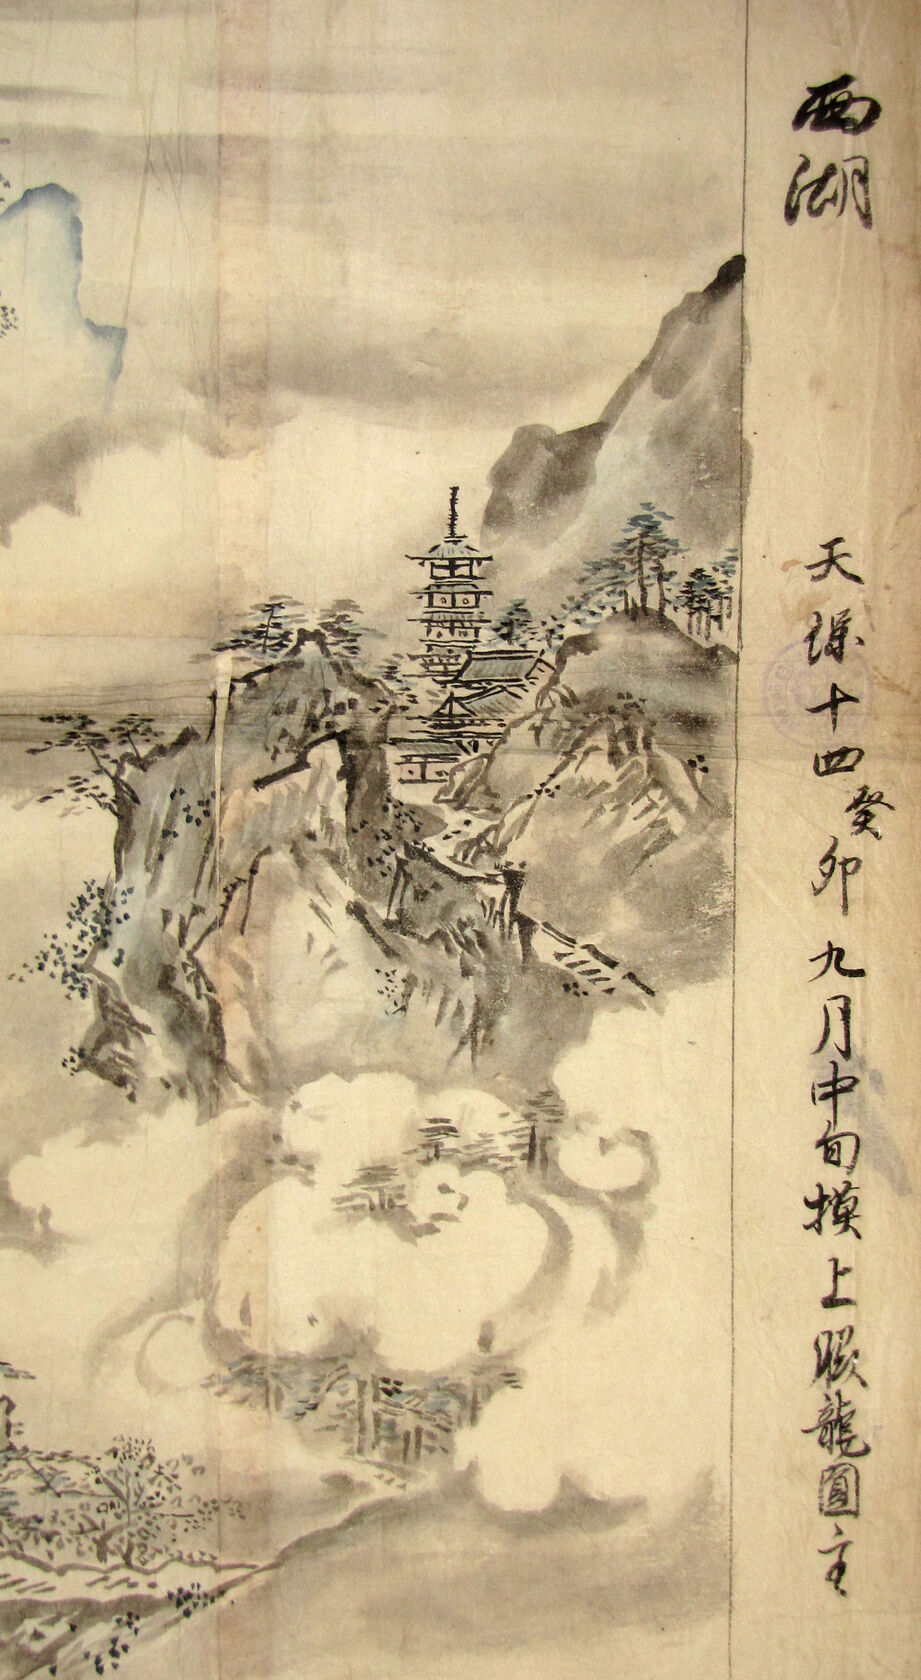 西湖
天保十四癸卯九月中旬摸上
龍圓主